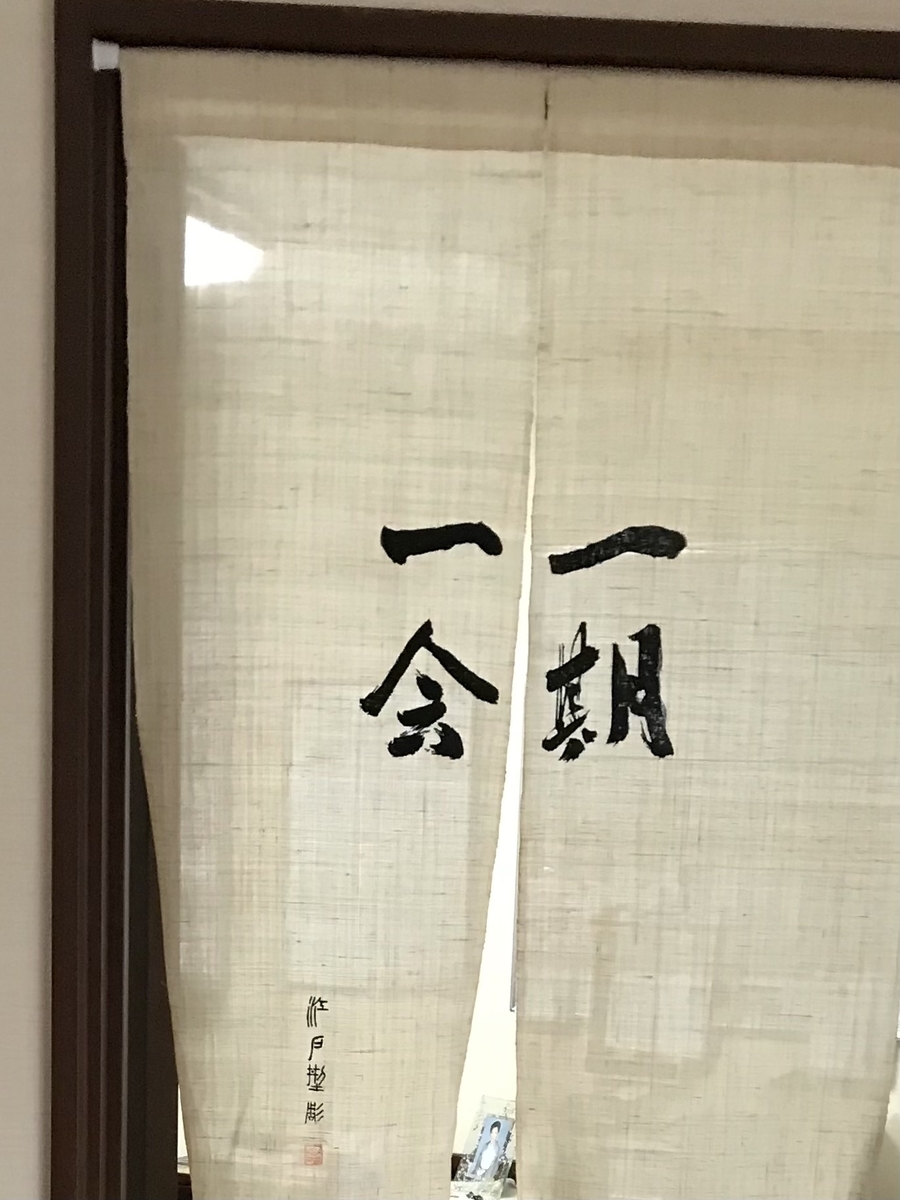 一期
一会
江戸型彫